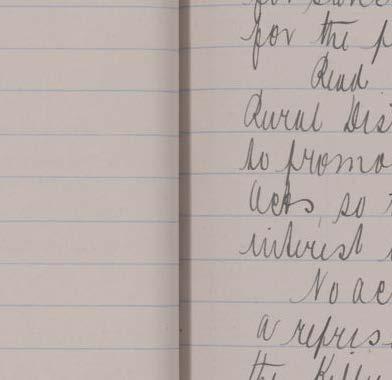 for the p
Read
Rural Dis
to promo
Acts, so t
interest
No ac
a repres
the Kill